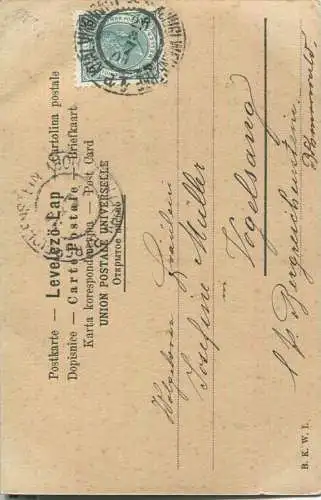 Postkarte — Levelező-Lap — Cartolina postale
Dopisnice — Carte Postale — Briefkaart
Karta korespondencyjna — Post Card
UNION POSTALE UNIVERSELLE
Открытое письмо
Wohlgeboren Fräulein
Josefine Müller
in Vogelsang
Bergreichenstein
Böhmerwald
B. K. W. I.